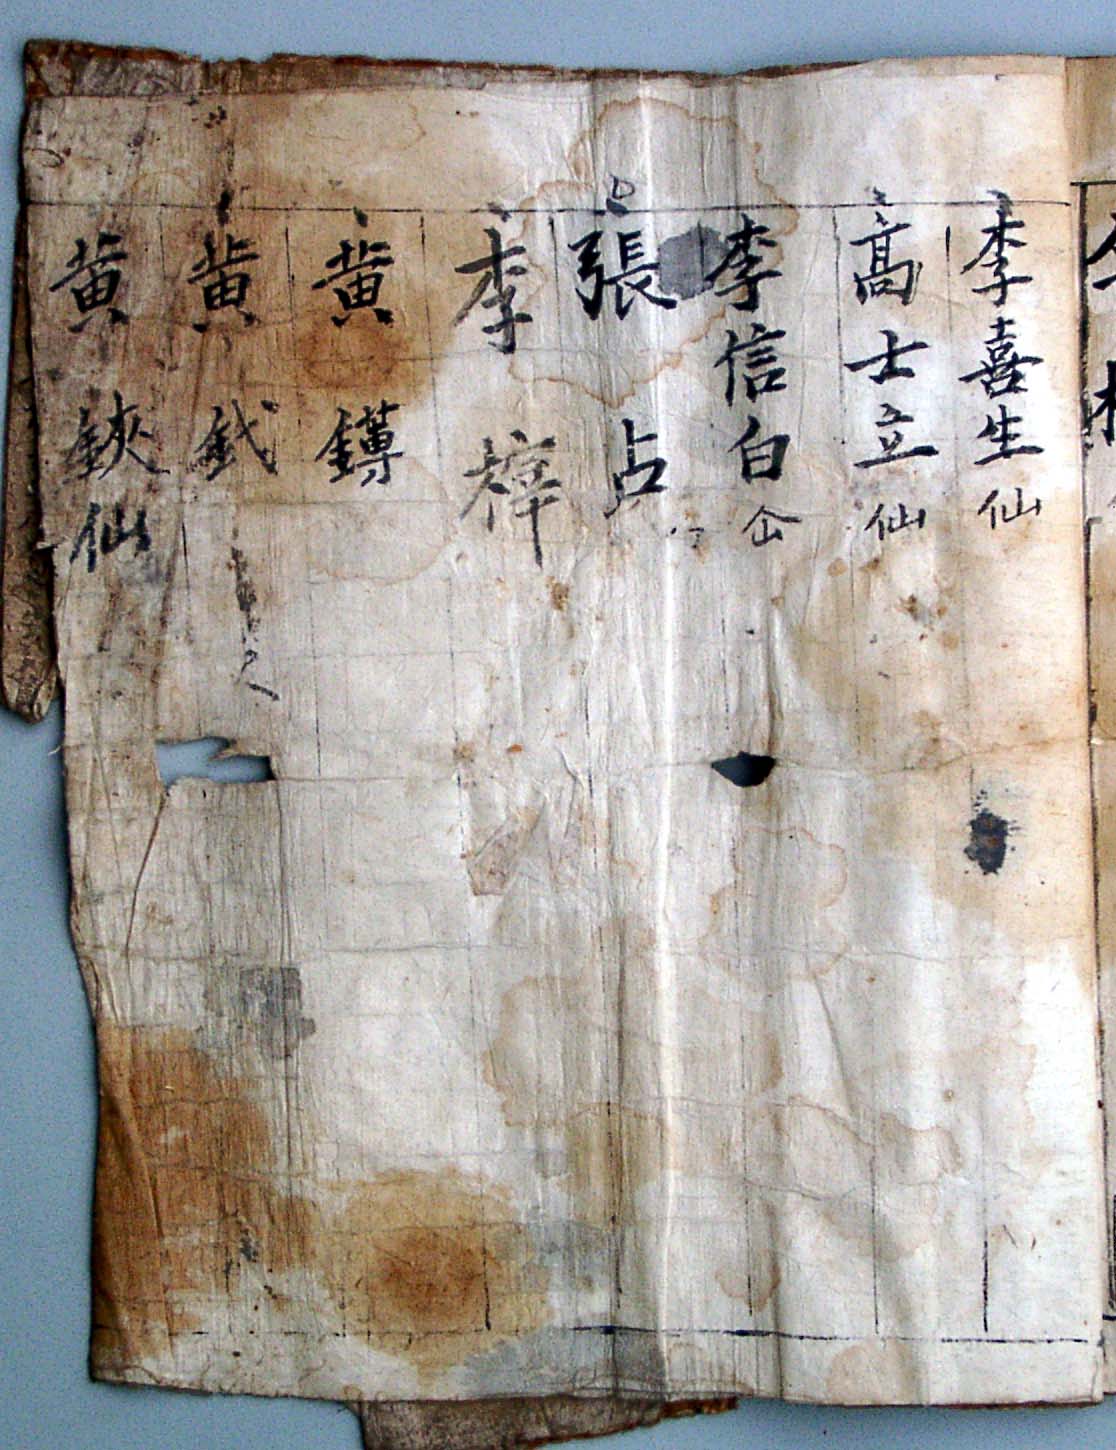 李喜生仙
高士立仙
李信白仚
張占
李梓
黄鏄
黄鉽
黄鋏仙